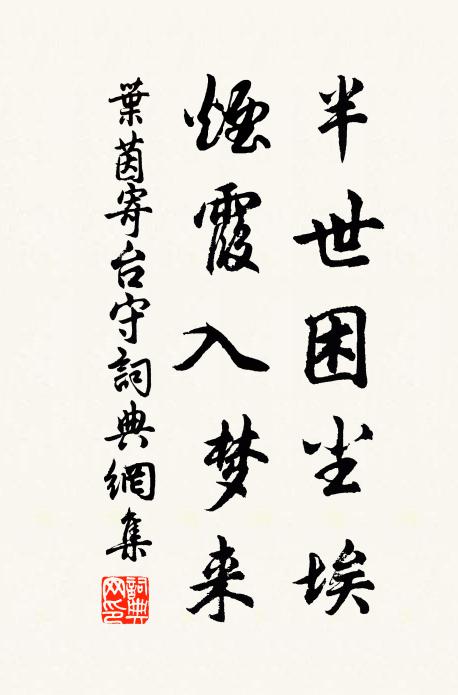 半世困尘埃
煙霞入梦来
葉茵寄台守詞典網集
詞典網印